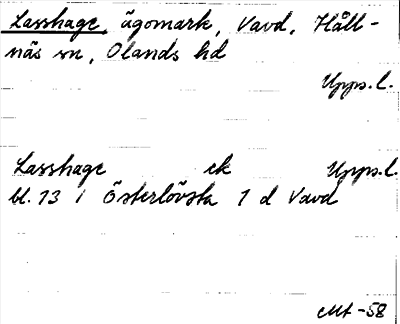 Lasshage, ägomark, Vavd, Håll-
näs sn, Olands hd
Upps.l.
Lasshage ek Upps.l.
bl. 13 i Österlövsta 1 d Vavd
MA -58